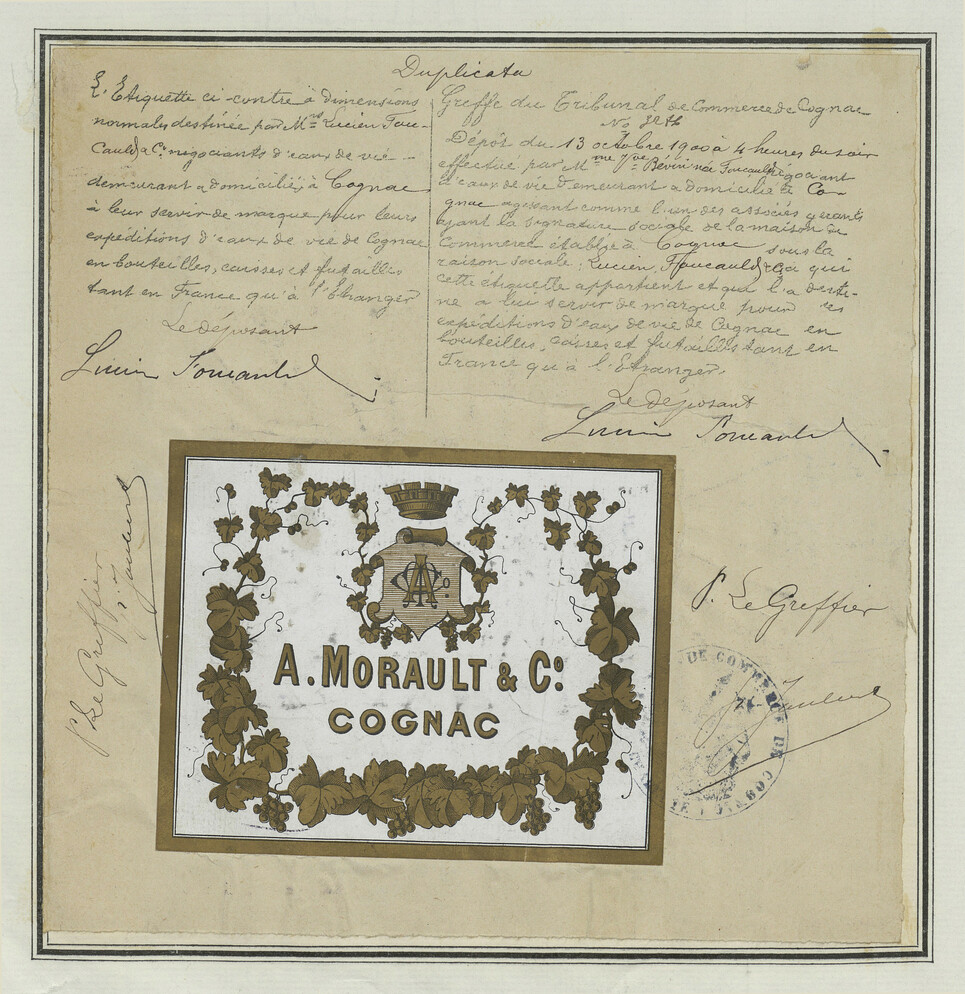 Duplicata
L'Etiquette ci-contre à dimensions
normales destinée par Mrs Lucien Fou-
cauld & Co négociants d'eaux de vie
demeurant & domiciliés à Cognac
à leur servir de marque pour leurs
expéditions d'eaux de vie de Cognac
en bouteilles, caisses et futailles
tant en France qu'à l'Etranger
Le déposant
Lucien Foucauld
Greffe du Tribunal de Commerce de Cognac
No
Dépôt du 13 octobre 1900 à 4 heures du soir
effectué par Mme Vve née Foucauld négociant
d'eaux de vie demeurant & domicilié à Co-
gnac agissant comme l'un des associés gérants
ayant la signature sociale de la maison de
Commerce établie à Cognac sous la
raison sociale: Lucien Foucauld & Co à qui
cette étiquette appartient et qui l'a desti-
né à lui servir de marque pour ses
expéditions d'eaux de vie de Cognac en
bouteilles, caisses et futailles tant en
France qu'à l'Etranger.
Le déposant
Lucien Foucauld
P. Le Greffier
AC Co
A. MORAULT & Co.
COGNAC
P. Le Greffier
DE COMMERCE DE COGNAC